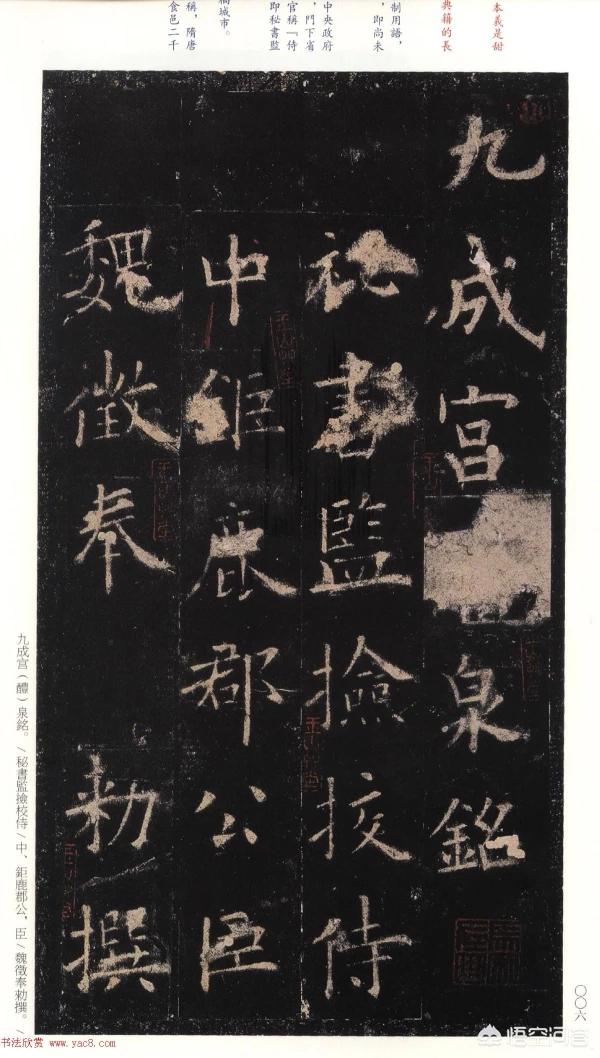 本義是甜
典籍的長
制用語，
，即尚未
中央政府
，門下省
官稱『侍
即秘書監
城市。
稱，隋唐
食邑二千
九成宮泉銘
祕書監撿挍侍
中鉅鹿郡公臣
魏徵奉勅撰
九成宮（醴）泉銘。／秘書監撿校侍／中、鉅鹿郡公，臣／魏徵奉勅撰。／
〇〇六
书法欣赏 www.yac8.com
悟空问答